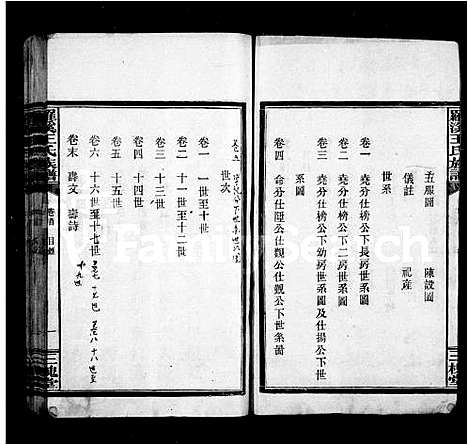 五服圖 陳設圖
儀註 祀產
世系
卷一 堯分仕榜公下長房世系圖
卷二 堯分仕榜公下二房世系圖
卷三 堯分仕榜公下幼房世系圖及仕揚公下世
系圖
卷四 命分仕 公仕觀公仕觀公下世系圖
世次
卷一 一世至十世
卷二 十一世至十二世
卷三 十三世
卷四 十四世
卷五 十五世
卷六 十六世至十七世 卷七 十七世 卷八 十八世至
十九世
卷末 壽文 壽詩
羅溪王氏族譜
卷首 目錄
一
三槐堂
羅溪王氏族譜
三槐堂
FamilySearch